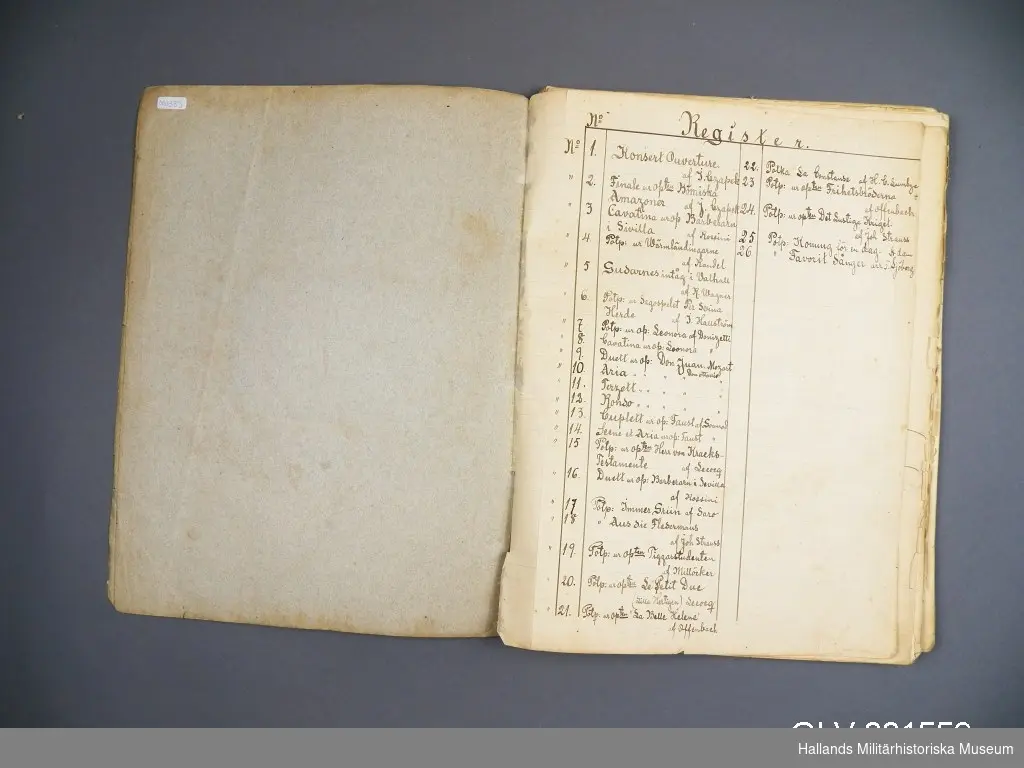 No Register.
No 1. Konsert Ouverture.
af J. Czapek
" 2. Finale ur optten Bömiska
Amazoner af J. Czapek
" 3 Cavatina ur op Barberarn
i Sivilla af Rossini
" 4 Potp: ur Wärmländingarne
af Randel
" 5 Gudarnes intåg i Valhall
af R. Wagner
" 6. Potp: ur Sagospelet Per Svina
Herde af J.
7 Potp: ur op: Leonora af Donizetti
" 8. Cavatina ur op: Leonora "
9. Duett ur op: Don Juan. Mozart
" 10. Aria " " " Don Ottavio "
" 11. Terzett " " " "
" 12. Rondo " " " "
" 13. Cuplett ur op: Faust af Gounod
" 14. Scene et Aria ur op: Faust "
" 15 Potp: ur optten Herr von
Testamente af Lecocq
" 16. Duett ur op: Barberarn i Sevilla
af Rossini
" 17 Potp: Immer Grün af Saro
" 18 " Aus die Fledermaus
af Joh Strauss
" 19. Potp: ur optten Tiggarstudenten
af Millöcker
" 20. Potp: ur optten Le Petit Duc
(Lilla Hertigen) Lecocq
" 21. Potp: ur optten "La Belle Helene"
af Offenbach
22. Polka La Constanse af H. C. Lumbye
23 Potp: ur optten Frihetsbröderna
af Offenbach
24. Potp: ur optten Det Lustiga Kriget
af Joh Strauss
25 Potp: Konung för en dag. A. Adam
26. " Favorit Sånger arr: Sjöberg
Hallands Militärhistoriska Museum